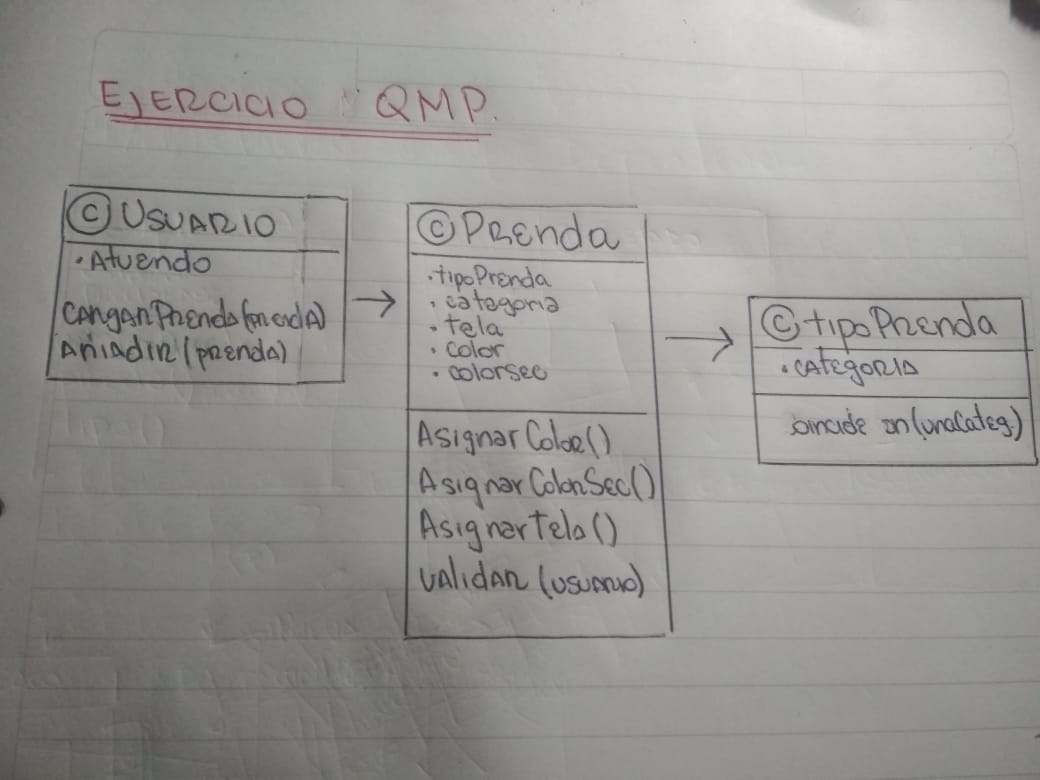 EJERCICIO QMP.
© USUARIO
· Atuendo
CARGARPrenda(prenda)
Aniadir(prenda)
© Prenda
· tipoPrenda
· categoria
· tela
· color
· colorsec
AsignarColor()
AsignarColorSec()
AsignarTela()
VALIDAR (USUARIO)
© tipoPrenda
· CATEGORIA
coincide en(unaCateg.)